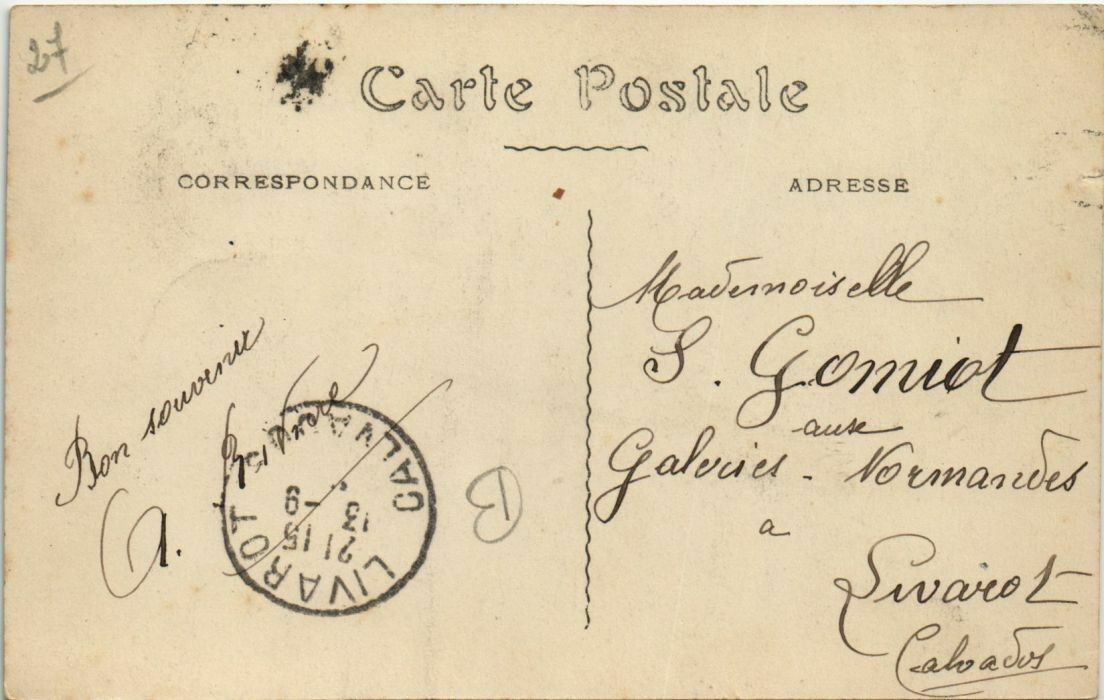 27
Carte Postale
CORRESPONDANCE
ADRESSE
Bon souvenir
A.
LIVAROT CALVADOS
21 15
13 -9
B
Mademoiselle
S. Gomiot
aux
Galeries - Normandes
a
Livarot
Calvados